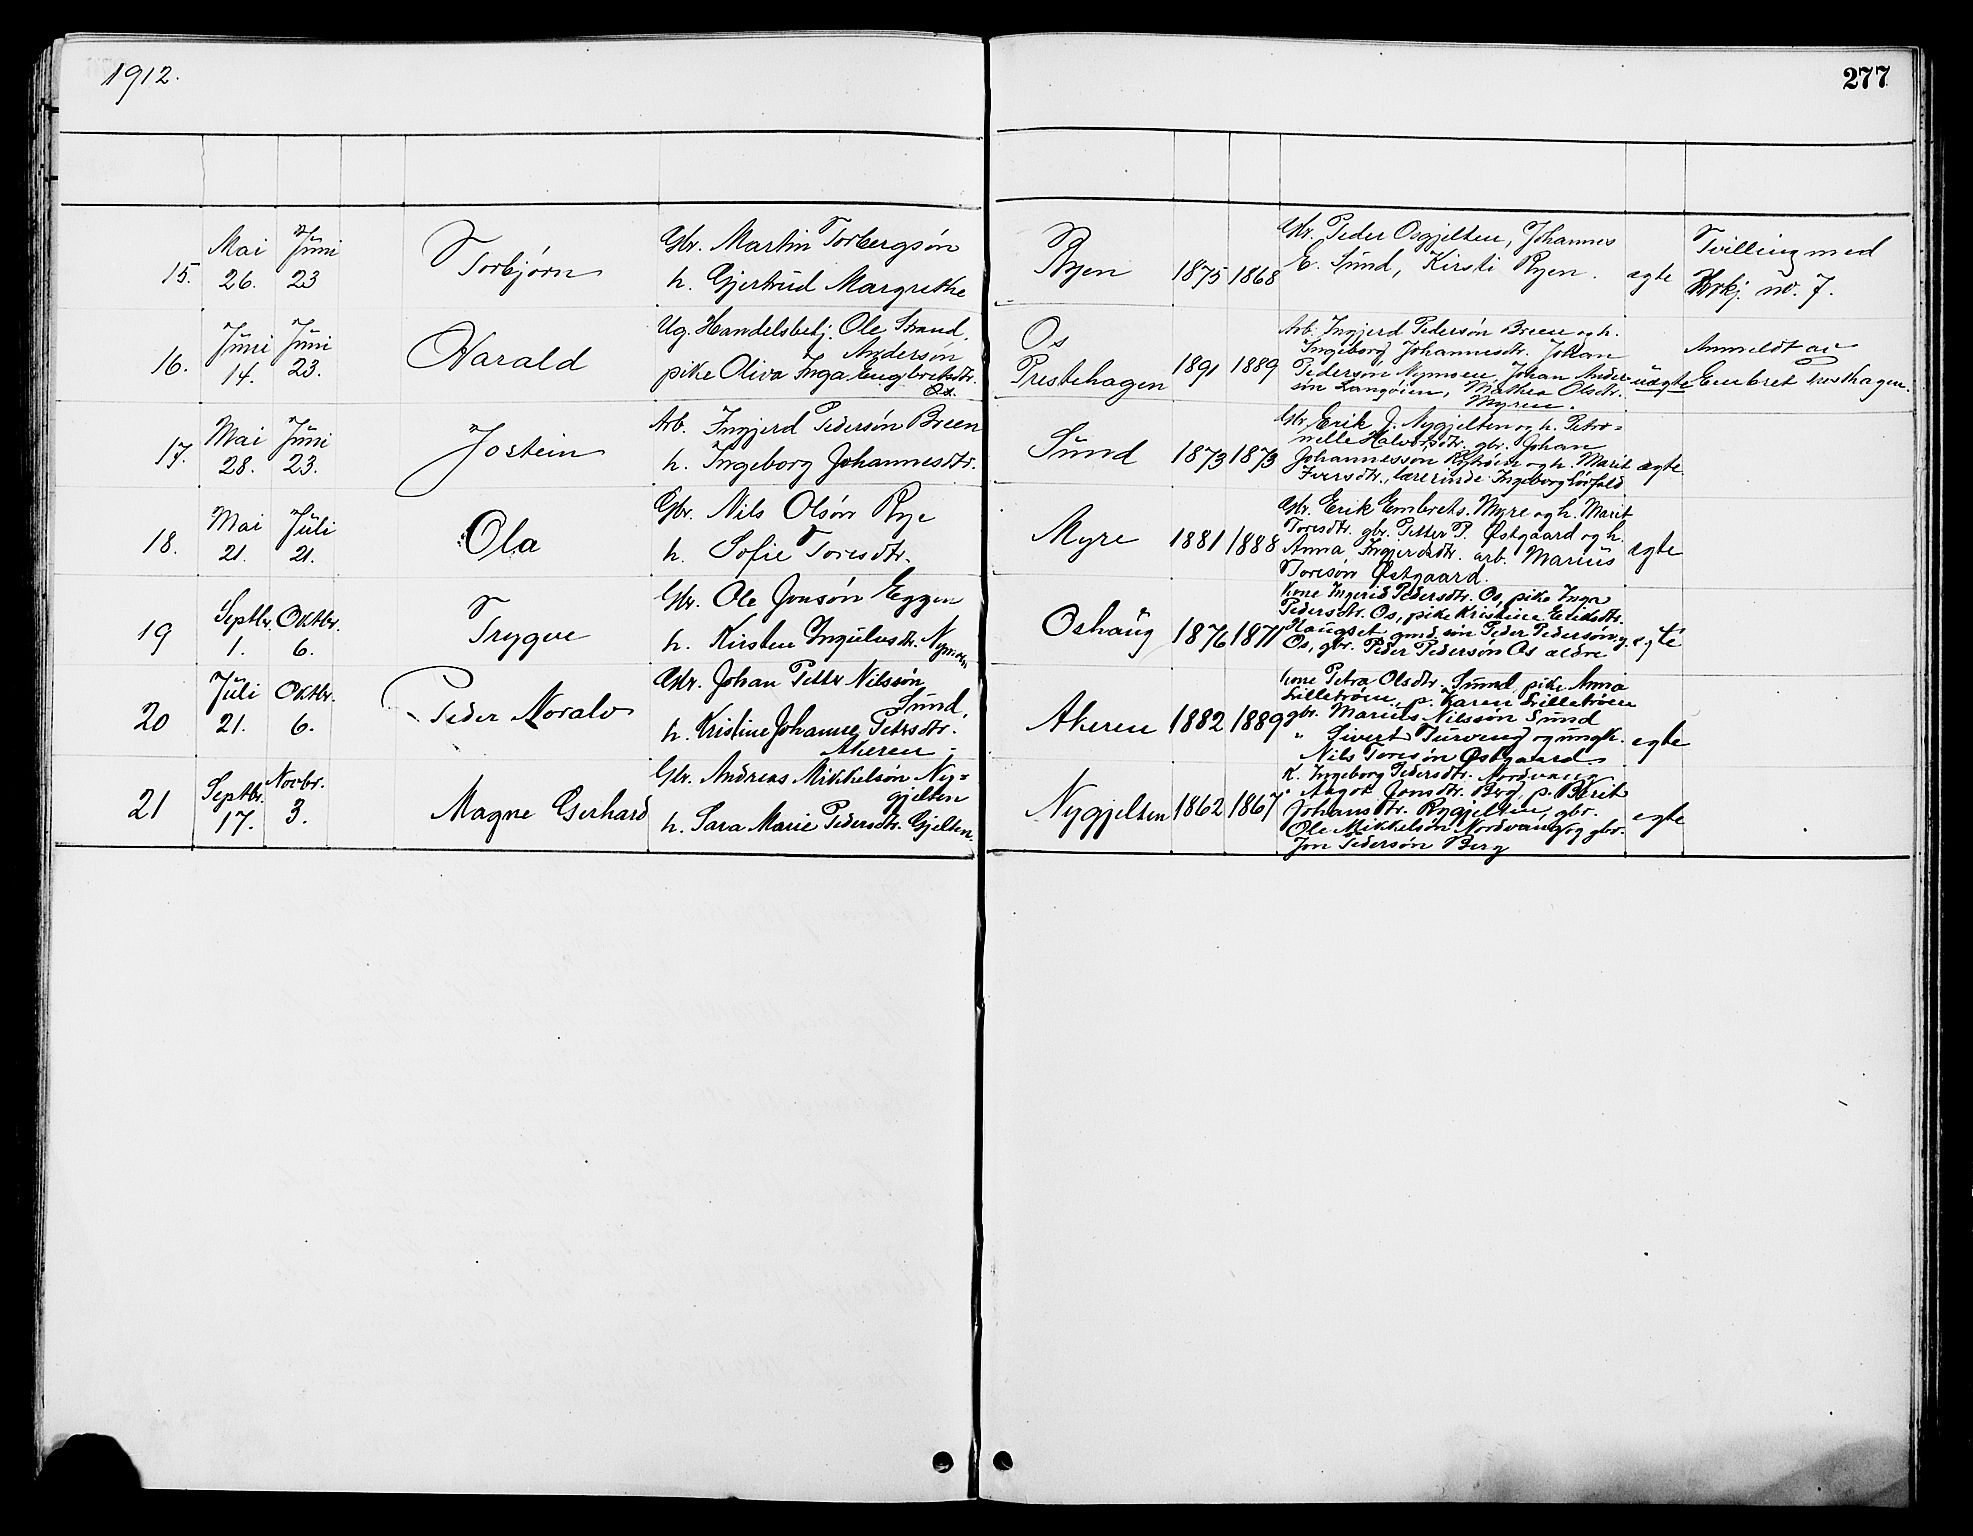 1912.
277
15.
Mai 26.
Juni 23
Torbjørn
Gbr. Martin Torbergsøn
h. Gjertrud Margrethe
Ryen
1875
1868
Gbr. Peder Osgjelten, Johannes
E. Sund, Kirsti Ryen.
egte
Tvilling med
Kvkj. no. 7.
16.
Juni 14.
Juni 23.
Harald
Ug. Handelsbetj. Ole Strand,
Andersøn
pike Oliva Inga Engbretsdtr.
Os.
Os
Prestehagen
1891
1889
Arb. Ingjerd Pedersøn Breen og h.
Ingeborg Johannesdtr. Johan
Pedersøn Nymoen, Johan Ander-
søn Langøien, Mathea Olsdtr.
Myren.
uegte
Anmeldt av
Embret Prosthagen.
17.
Mai 28.
Juni 23.
Jostein
Arb. Ingjerd Pedersøn Breen
h. Ingeborg Johannesdtr.
Sund
1873
1873
Gbr. Erik J. Nygjelten og h. Petro-
nelle Halvorsdtr. gbr. Johan
Johannessøn og h. Marit
Iversdtr., lærerinde Ingeborg
egte
18.
Mai 21.
Juli 21.
Ola
Gbr. Nils Olsøn Rye
h. Sofie Toresdtr.
Myre
1881
1888
Gbr. Erik Embrets. Myre og h. Marit
Toresdtr. gbr. Petter P. Østgaard og h.
Anna Ingjerdsdtr. arb. Marius
Toresøn Østgaard.
egte
19
Septbr. 1.
Oktbr. 6.
Trygve
Gbr. Ole Jonsøn Eggen
h. Kirsten Ingulvsdtr. Nymoen
Oshaug
1876
1871
Kone Ingerid Pedersdtr. Os, pike Inga
Pedersdtr. Os, pike Kristine Eriksdtr.
Haugset, gmd. søn Peder Pedersøn yg.
Os, gbr. Peder Pedersøn Os ældre
egte
20
Juli 21.
Oktbr. 6.
Peder Noralv
Gbr. Johan Petter Nilssøn
Sund,
h. Kristine Johanne Petersdtr.
Akeren
Akeren
1882
1889
Kone Petra Olsdtr. Sund, pike Anna
Lilletrøen, p. Karen Lilletrøen
gbr. Marius Nilssøn Sund
" Sivert Turveng og ungk.
Nils Toresøn Østgaard
egte
21
Septbr. 17.
Novbr. 3.
Magne Gerhard
Gbr. Andreas Mikkelsøn Ny-
gjelten
h. Sara Marie Pedersdtr. Gjelten
Nygjelten
1862
1867
K. Ingeborg Pedersdtr. Nordvang
" Aagot Jonsdtr. Berg, p. Berit
Johansdtr. Rygjelten, gbr.
Ole Mikkelsøn Nordvang og gbr.
Jon Pedersøn Berg
egte